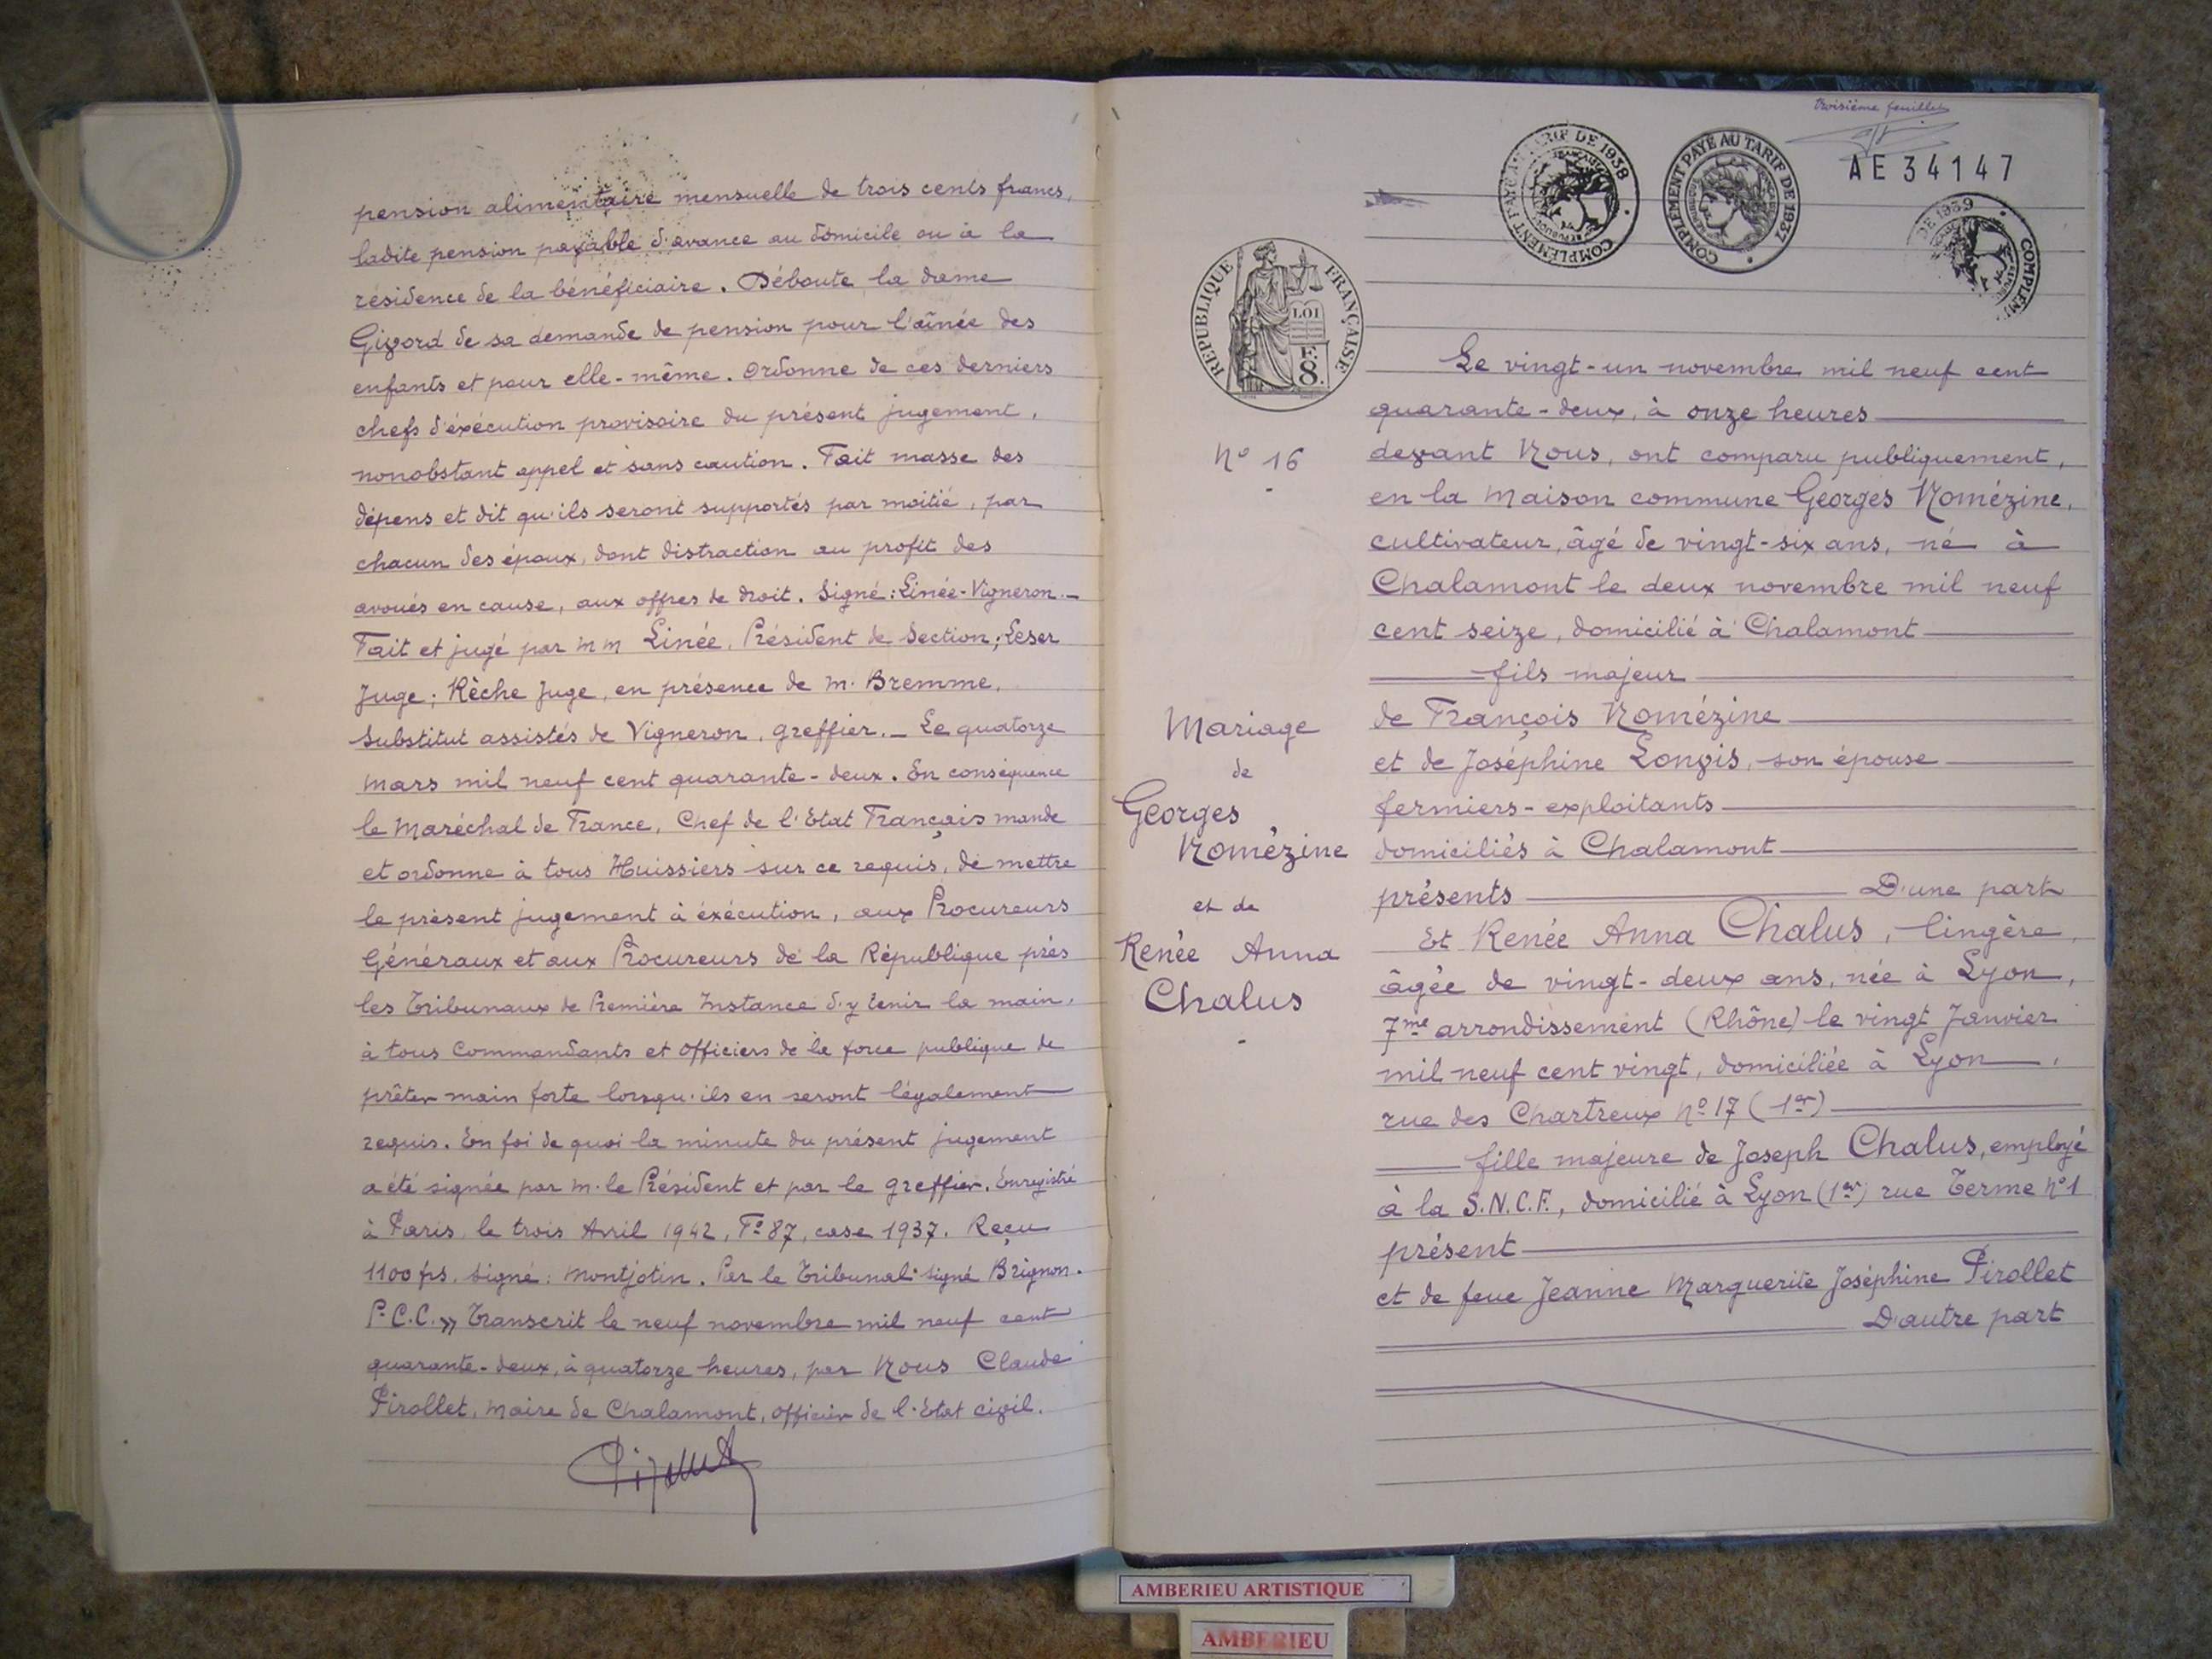 pension alimentaire mensuelle de trois cents francs,
ladite pension payable d'avance au domicile ou à la
résidence de la bénéficiaire. Déboute la dame
Givord de sa demande de pension pour l'aînée des
enfants et pour elle-même. Ordonne de ces derniers
chefs d'éxécution provisoire du présent jugement,
nonobstant appel et sans caution. Fait masse des
dépens et dit qu'ils seront supportés par moitié, par
chacun des époux, dont distraction au profit des
avoués en cause, aux offres de droit. Signé: Linée-Vigneron._
Fait et jugé par MM Linée, Président de Section; Leser
Juge; Rèche Juge, en présence de M. Bremme,
Substitut assistés de Vigneron, greffier._ Le quatorze
Mars mil neuf cent quarante-deux. En conséquence
le Maréchal de France, Chef de l'Etat Français mande
et ordonne à tous Huissiers sur ce requis, de mettre
le présent jugement à éxécution, aux Procureurs
Généraux et aux Procureurs de la République près
les Tribunaux de Première Instance d'y tenir la main,
à tous Commandants et Officiers de la force publique de
prêter main forte lorsqu'ils en seront légalement
requis. En foi de quoi la minute du présent jugement
a été signée par M. le Président et par le greffier. Enregistré
à Paris, le trois Avril 1942, F° 87, case 1937. Reçu
1100 frs. Signé: Montjotin. Par le Tribunal signé Brignon.
P.C.C. » Transcrit le neuf novembre mil neuf cent
quarante-deux, à quatorze heures, par Nous Claude
Pirollet, Maire de Chalamont, officier de l'Etat civil.
troisième feuillet
COMPLÉMENT PAYÉ AU TARIF DE 1938
COMPLÉMENT PAYÉ AU TARIF DE 1937
AE 34147
DE 1939 COMPLÉM
RÉPUBLIQUE FRANÇAISE
LOI
F.
8.
N° 16
Mariage
de
Georges
Nomézine
et de
Renée Anna
Chalus
Le vingt-un novembre mil neuf cent
quarante-deux, à onze heures
devant Nous, ont comparu publiquement,
en la Maison commune Georges Nomézine,
cultivateur, âgé de vingt-six ans, né à
Chalamont le deux novembre mil neuf
cent seize, domicilié à Chalamont
fils majeur
de François Nomézine
et de Joséphine Longis, son épouse
fermiers-exploitants
domiciliés à Chalamont
présents D'une part
Et Renée Anna Chalus, lingère,
âgée de vingt-deux ans, née à Lyon,
7me arrondissement (Rhône) le vingt Janvier
mil neuf cent vingt, domiciliée à Lyon,
rue des Chartreux N° 17 (1er)
fille majeure de Joseph Chalus, employé
à la S.N.C.F., domicilié à Lyon (1er) rue Terme N° 1
présent
et de feue Jeanne Marguerite Joséphine Pirollet
D'autre part
AMBERIEU ARTISTIQUE
AMBERIEU